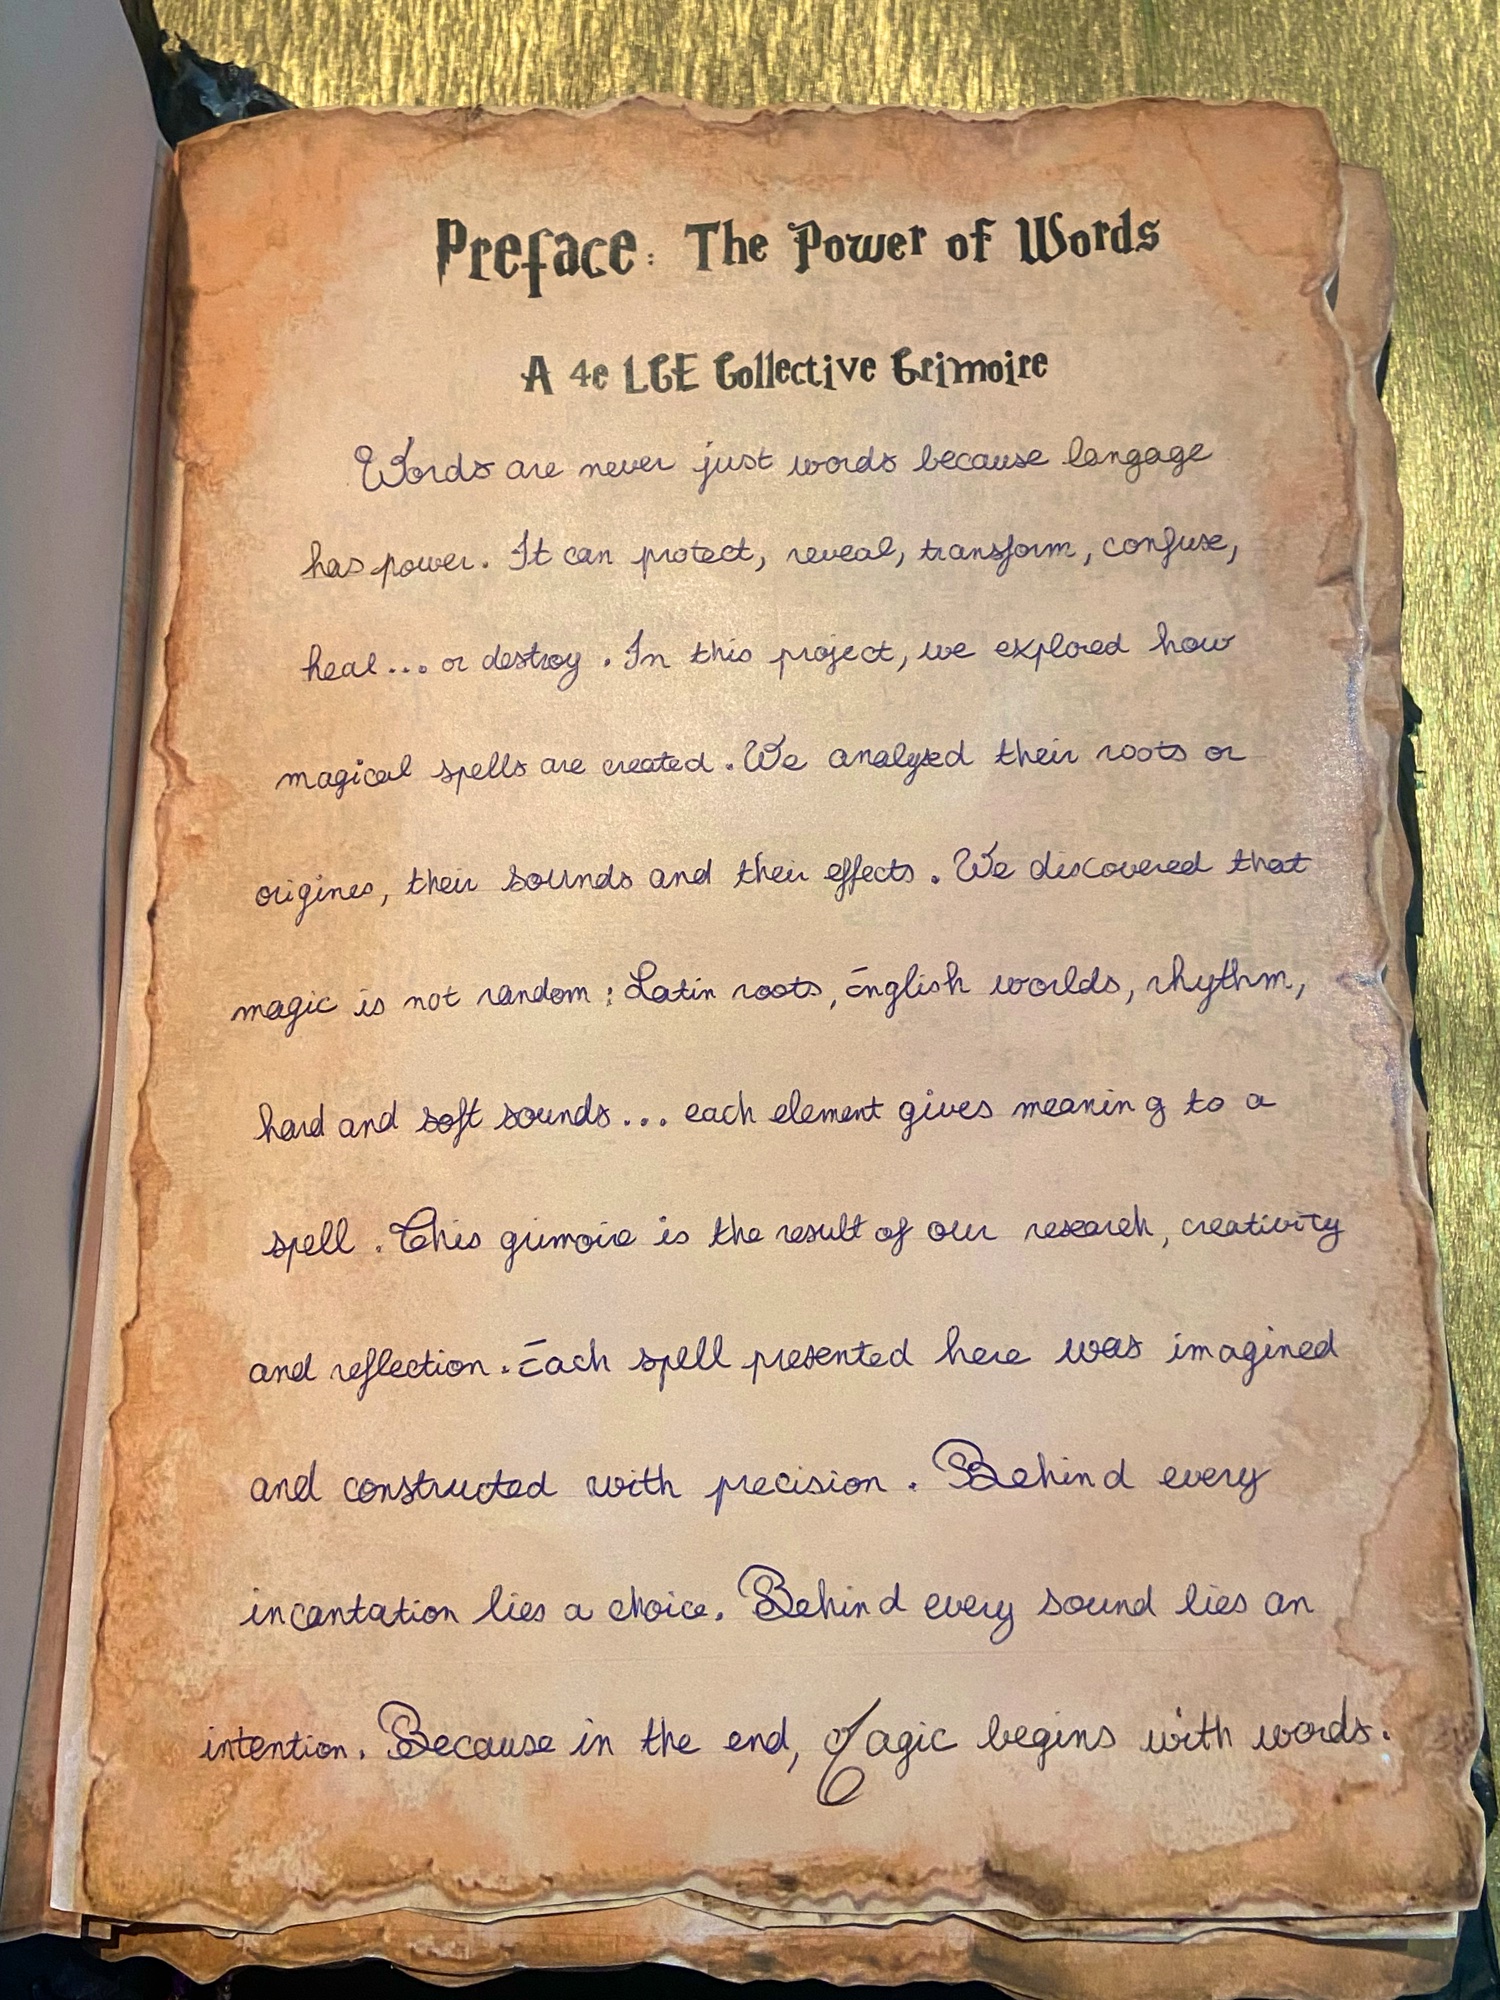 Preface: The Power of Words
A 4e LCE Collective Grimoire
Words are never just words because langage
has power. It can protect, reveal, transform, confuse,
heal... or destroy. In this project, we explored how
magical spells are created. We analyzed their roots or
origines, their sounds and their effects. We discovered that
magic is not random: Latin roots, English worlds, rhythm,
hard and soft sounds... each element gives meaning to a
spell. This grimoire is the result of our research, creativity
and reflection. Each spell presented here was imagined
and constructed with precision. Behind every
incantation lies a choice. Behind every sound lies an
intention. Because in the end, Magic begins with words.